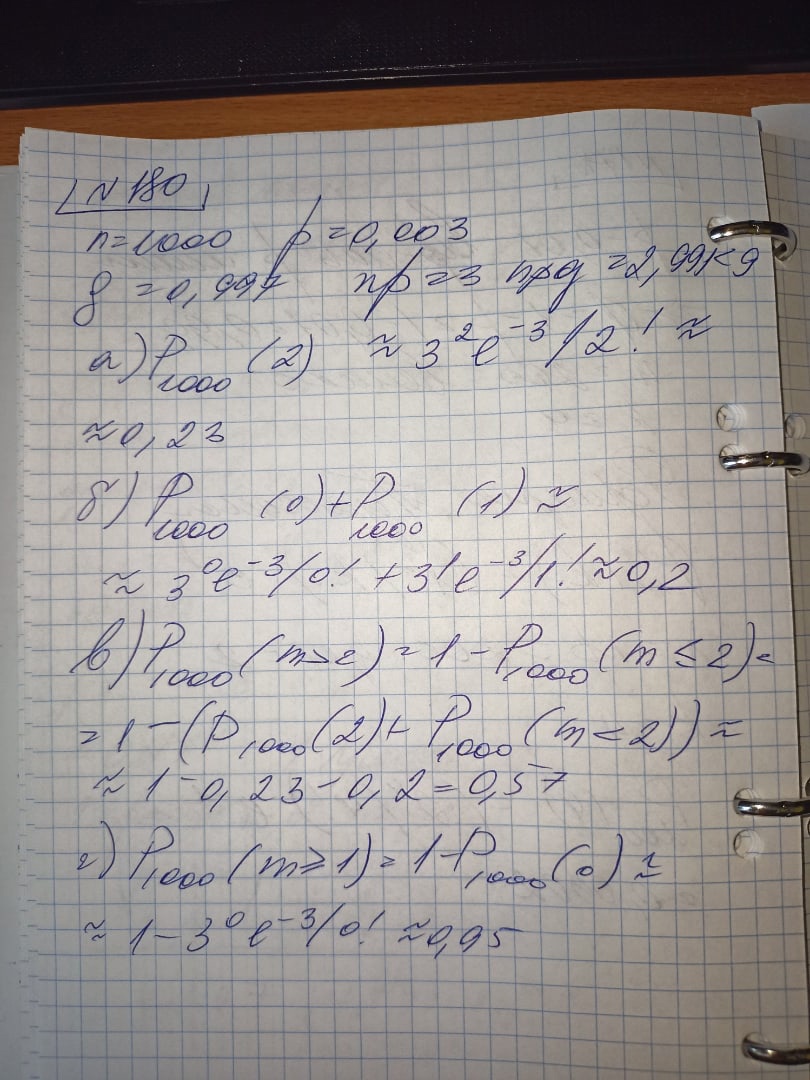 №180
n=1000 p=0,003
q=0,997 np=3 npq=2,991<9
а) P₁₀₀₀(2) ≈ 3²e⁻³/2! ≈
≈0,23
б) P₁₀₀₀(0)+P₁₀₀₀(1) ≈
≈ 3⁰e⁻³/0! + 3¹e⁻³/1! ≈ 0,2
в) P₁₀₀₀(m>2) = 1 - P₁₀₀₀(m ≤ 2) =
= 1 - (P₁₀₀₀(2) + P₁₀₀₀(m < 2)) ≈
≈ 1 - 0,23 - 0,2 = 0,57
г) P₁₀₀₀(m ≥ 1) = 1 - P₁₀₀₀(0) ≈
≈ 1 - 3⁰e⁻³/0! ≈ 0,95